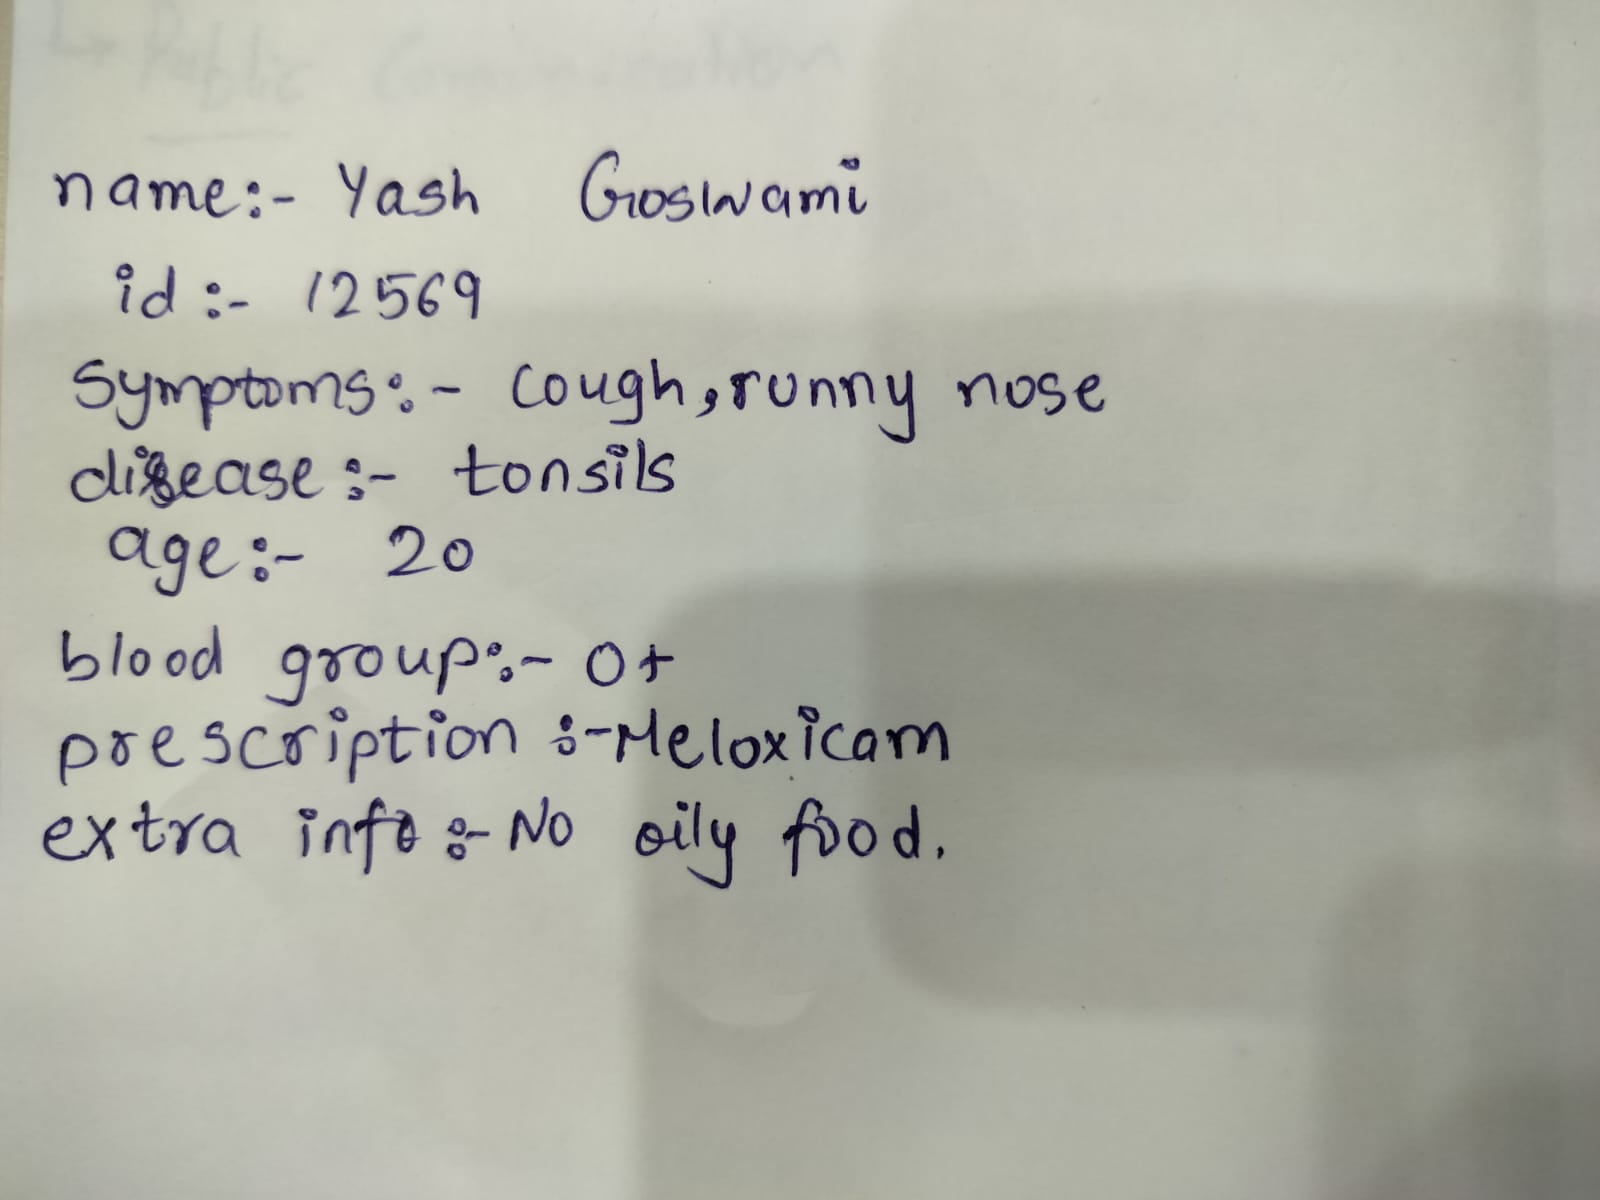 name:- Yash Goswami
id :- 12569
Symptoms:- Cough, runny nose
disease :- tonsils
age:- 20
blood group:- O+
prescription :- Meloxicam
extra info :- No oily food.